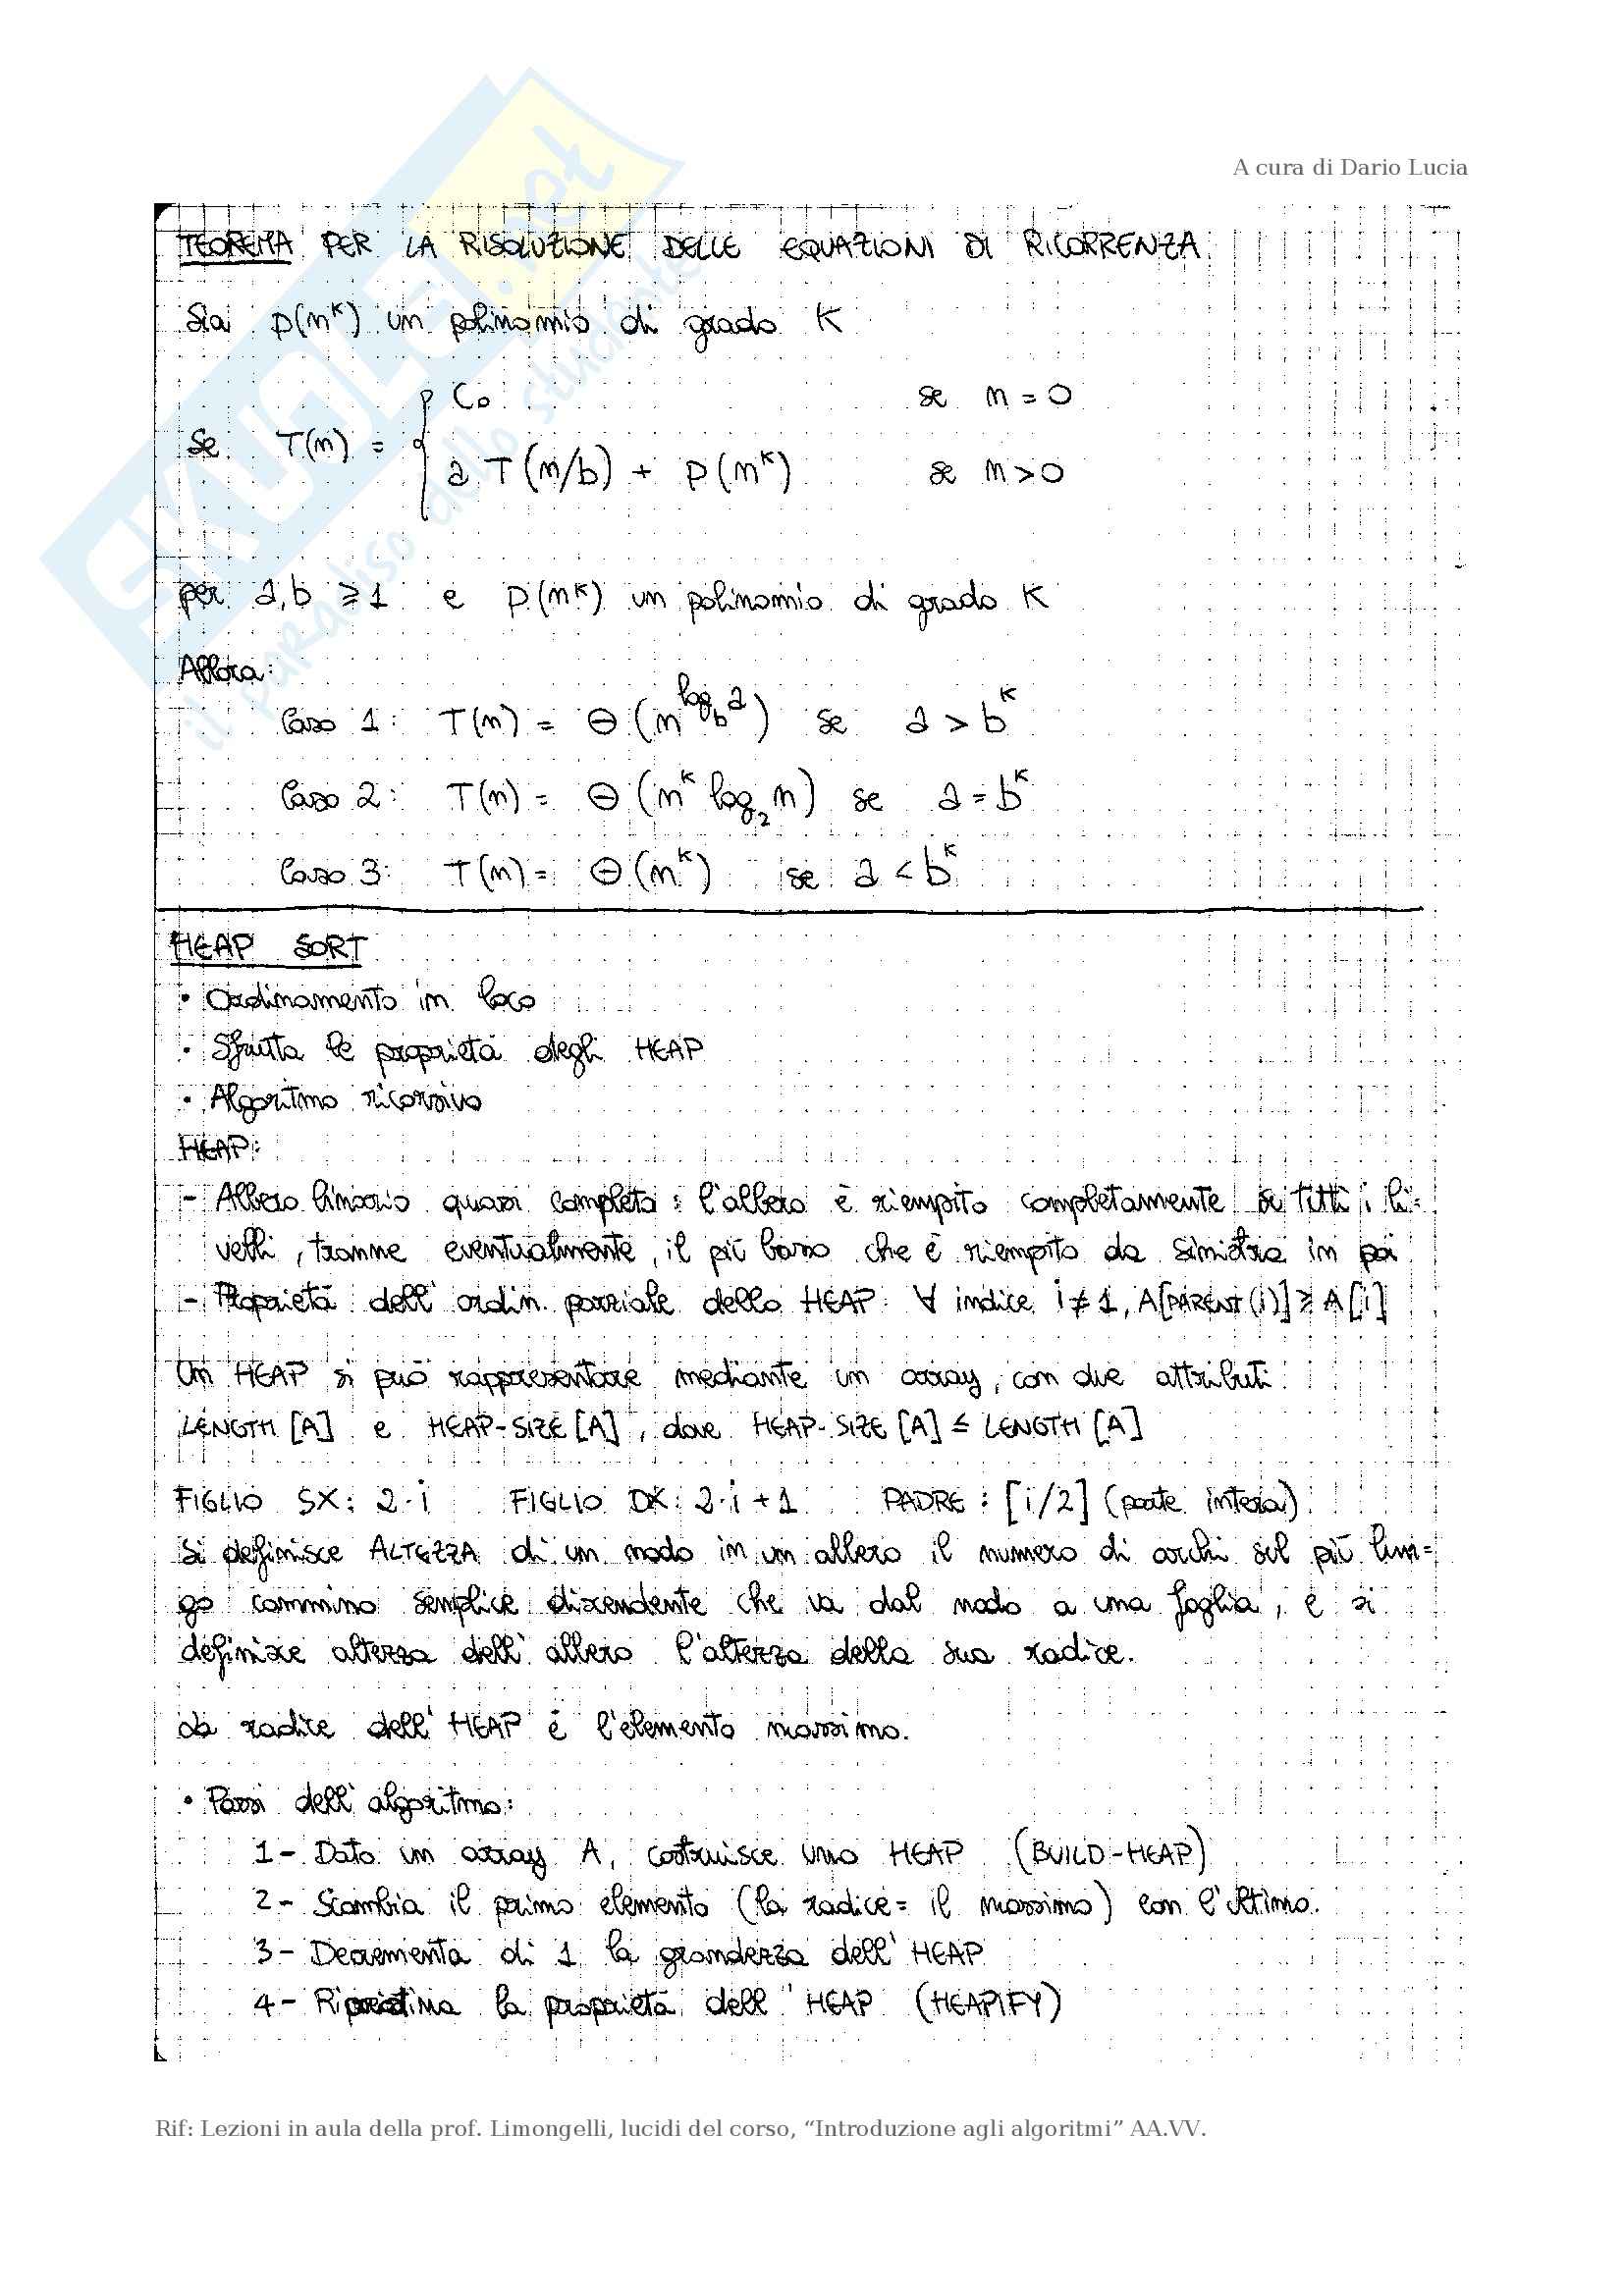 A cura di Dario Lucia
TEOREMA PER LA RISOLUZIONE DELLE EQUAZIONI DI RICORRENZA
Sia p(n^k) un polinomio di grado K
C₀ se n = 0
Se T(n) =
a T(n/b) + p(n^k) se n > 0
per a, b ≥ 1 e p(n^k) un polinomio di grado K
Allora:
Caso 1: T(n) = Θ(n^(log_b a)) se a > b^k
Caso 2: T(n) = Θ(n^k log₂ n) se a = b^k
Caso 3: T(n) = Θ(n^k) se a < b^k
HEAP SORT
• Ordinamento in loco
• Sfrutta le proprietà degli HEAP
• Algoritmo ricorsivo
HEAP:
- Albero binario quasi completo: l'albero è riempito completamente su tutti i li=
velli, tranne eventualmente, il più basso che è riempito da sinistra in poi
- Proprietà dell'ordin. parziale dello HEAP: ∀ indice i ≠ 1, A[PARENT(i)] ≥ A[i]
Un HEAP si può rappresentare mediante un array, con due attributi:
LENGTH [A] e HEAP-SIZE [A], dove HEAP-SIZE [A] ≤ LENGTH [A]
FIGLIO SX: 2·i FIGLIO DX: 2·i + 1 PADRE: [i/2] (parte intera)
Si definisce ALTEZZA di un nodo in un albero il numero di archi sul più lun=
go cammino semplice discendente che va dal nodo a una foglia, e si
definisce altezza dell'albero l'altezza della sua radice.
La radice dell'HEAP è l'elemento massimo.
• Passi dell'algoritmo:
1 - Dato un array A, costruisce uno HEAP (BUILD-HEAP)
2 - Scambia il primo elemento (la radice = il massimo) con l'ultimo.
3 - Decrementa di 1 la grandezza dell'HEAP
4 - Ripristina la proprietà dell'HEAP (HEAPIFY)
Rif: Lezioni in aula della prof. Limongelli, lucidi del corso, “Introduzione agli algoritmi” AA.VV.
EXULS.net
il paradiso dello studente